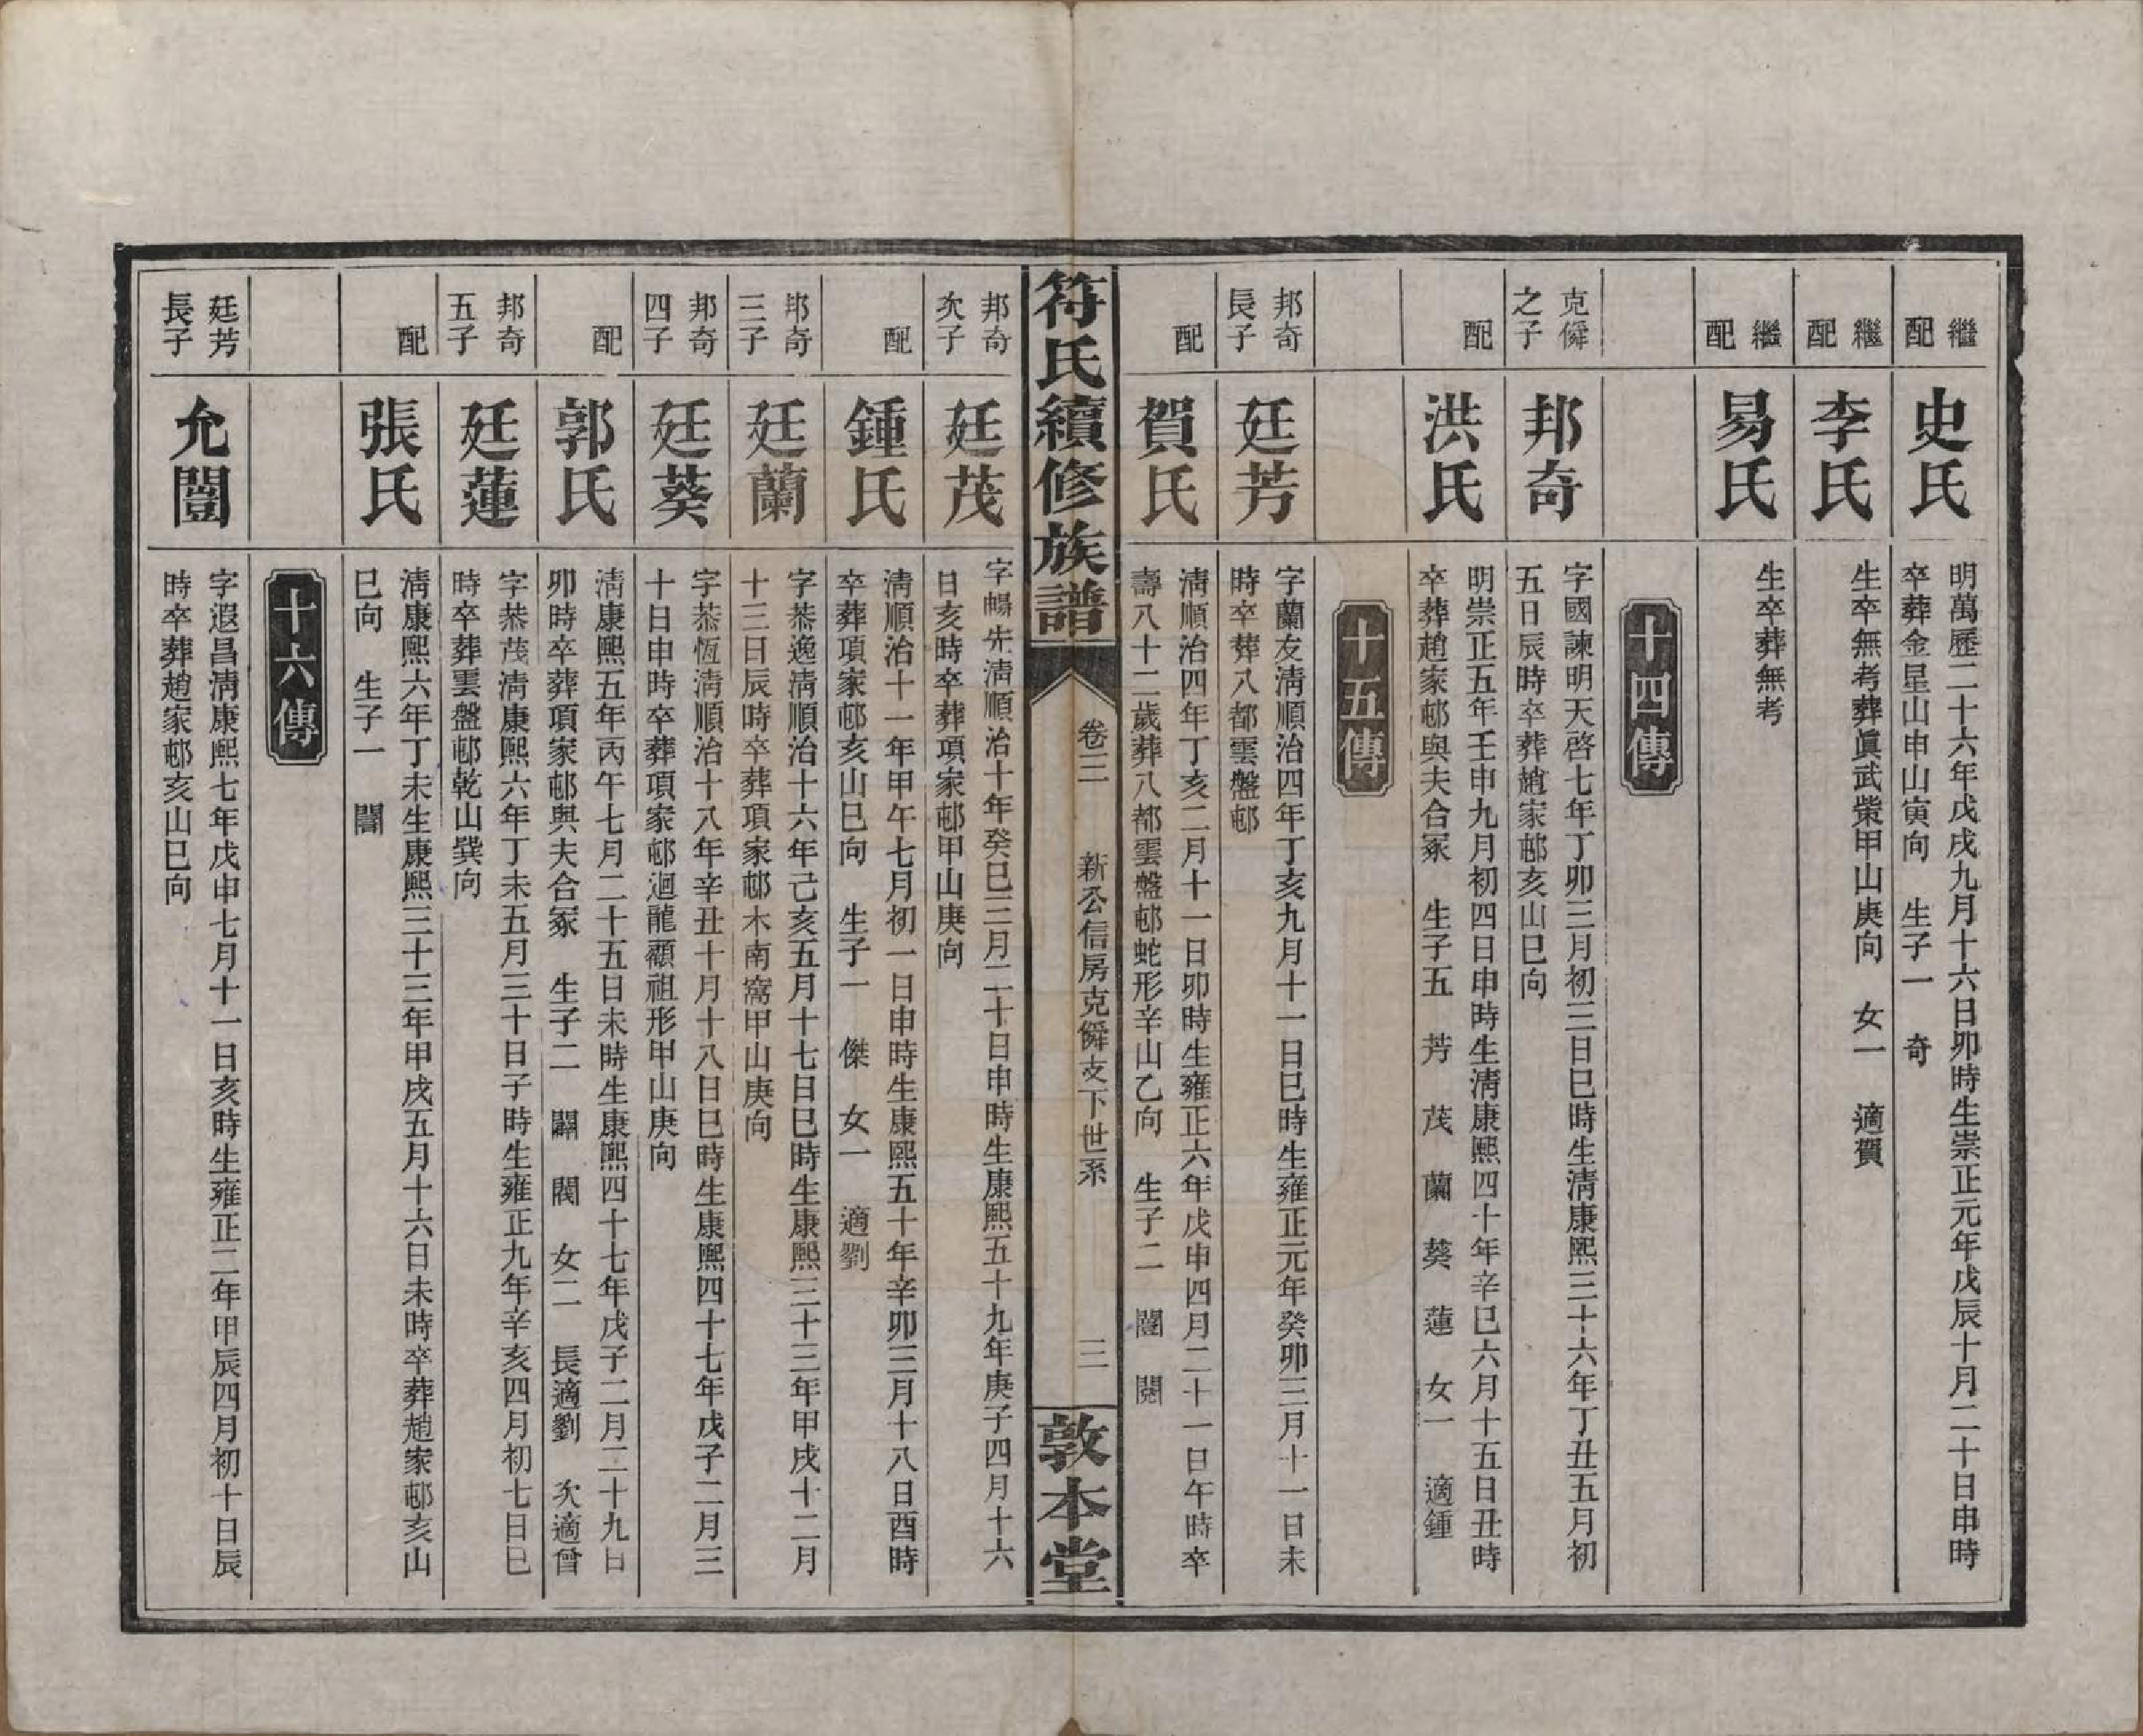 繼配
史氏
明萬歷二十六年戊戌九月十六日卯時生崇正元年戊辰十月二十日申時
卒葬金星山申山寅向　生子一　奇
繼配
李氏
生卒無考葬眞武棠甲山庚向　女一　適賀
繼配
易氏
生卒葬無考
十四傳
克僢
之子
邦奇
字國諫明天啓七年丁卯三月初三日巳時生淸康熙三十六年丁丑五月初
五日辰時卒葬趙家邨亥山巳向
配
洪氏
明崇正五年壬申九月初四日申時生淸康熙四十年辛巳六月十五日丑時
卒葬趙家邨與夫合冢　生子五　芳　茂　蘭　葵　蓮　女一　適鍾
十五傳
邦奇
長子
廷芳
字蘭友淸順治四年丁亥九月十一日巳時生雍正元年癸卯三月十一日未
時卒葬八都雲盤邨
配
賀氏
淸順治四年丁亥二月十一日卯時生雍正六年戊申四月二十一日午時卒
壽八十二歲葬八都雲盤邨蛇形辛山乙向　生子二　闓　閱
符氏續修族譜
卷三　新公信房克僢支下世系
三
敦本堂
邦奇
次子
廷茂
字暢先淸順治十年癸巳三月二十日申時生康熙五十九年庚子四月十六
日亥時卒葬項家邨甲山庚向
配
鍾氏
淸順治十一年甲午七月初一日申時生康熙五十年辛卯三月十八日酉時
卒葬項家邨亥山巳向　生子一　傑　女一　適劉
邦奇
三子
廷蘭
字恭逸淸順治十六年己亥五月十七日巳時生康熙三十三年甲戌十二月
十三日辰時卒葬項家邨木南窩甲山庚向
邦奇
四子
廷葵
字恭恆淸順治十八年辛丑十月十八日巳時生康熙四十七年戊子二月三
十日申時卒葬項家邨迴龍顧祖形甲山庚向
配
郭氏
淸康熙五年丙午七月二十五日未時生康熙四十七年戊子二月二十九日
卯時卒葬項家邨與夫合冢　生子二　闢　閥　女二　長適劉　次適曾
邦奇
五子
廷蓮
字恭茂淸康熙六年丁未五月三十日子時生雍正九年辛亥四月初七日巳
時卒葬雲盤邨乾山巽向
配
張氏
淸康熙六年丁未生康熙三十三年甲戌五月十六日未時卒葬趙家邨亥山
巳向　生子一　闇
十六傳
廷芳
長子
允闓
字遐昌淸康熙七年戊申七月十一日亥時生雍正二年甲辰四月初十日辰
時卒葬趙家邨亥山巳向